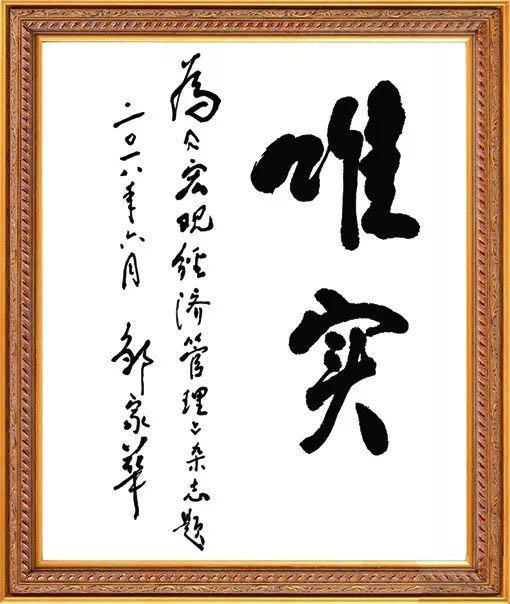 唯实
為《宏观经济管理》杂志题
二〇一六年六月 邹家华